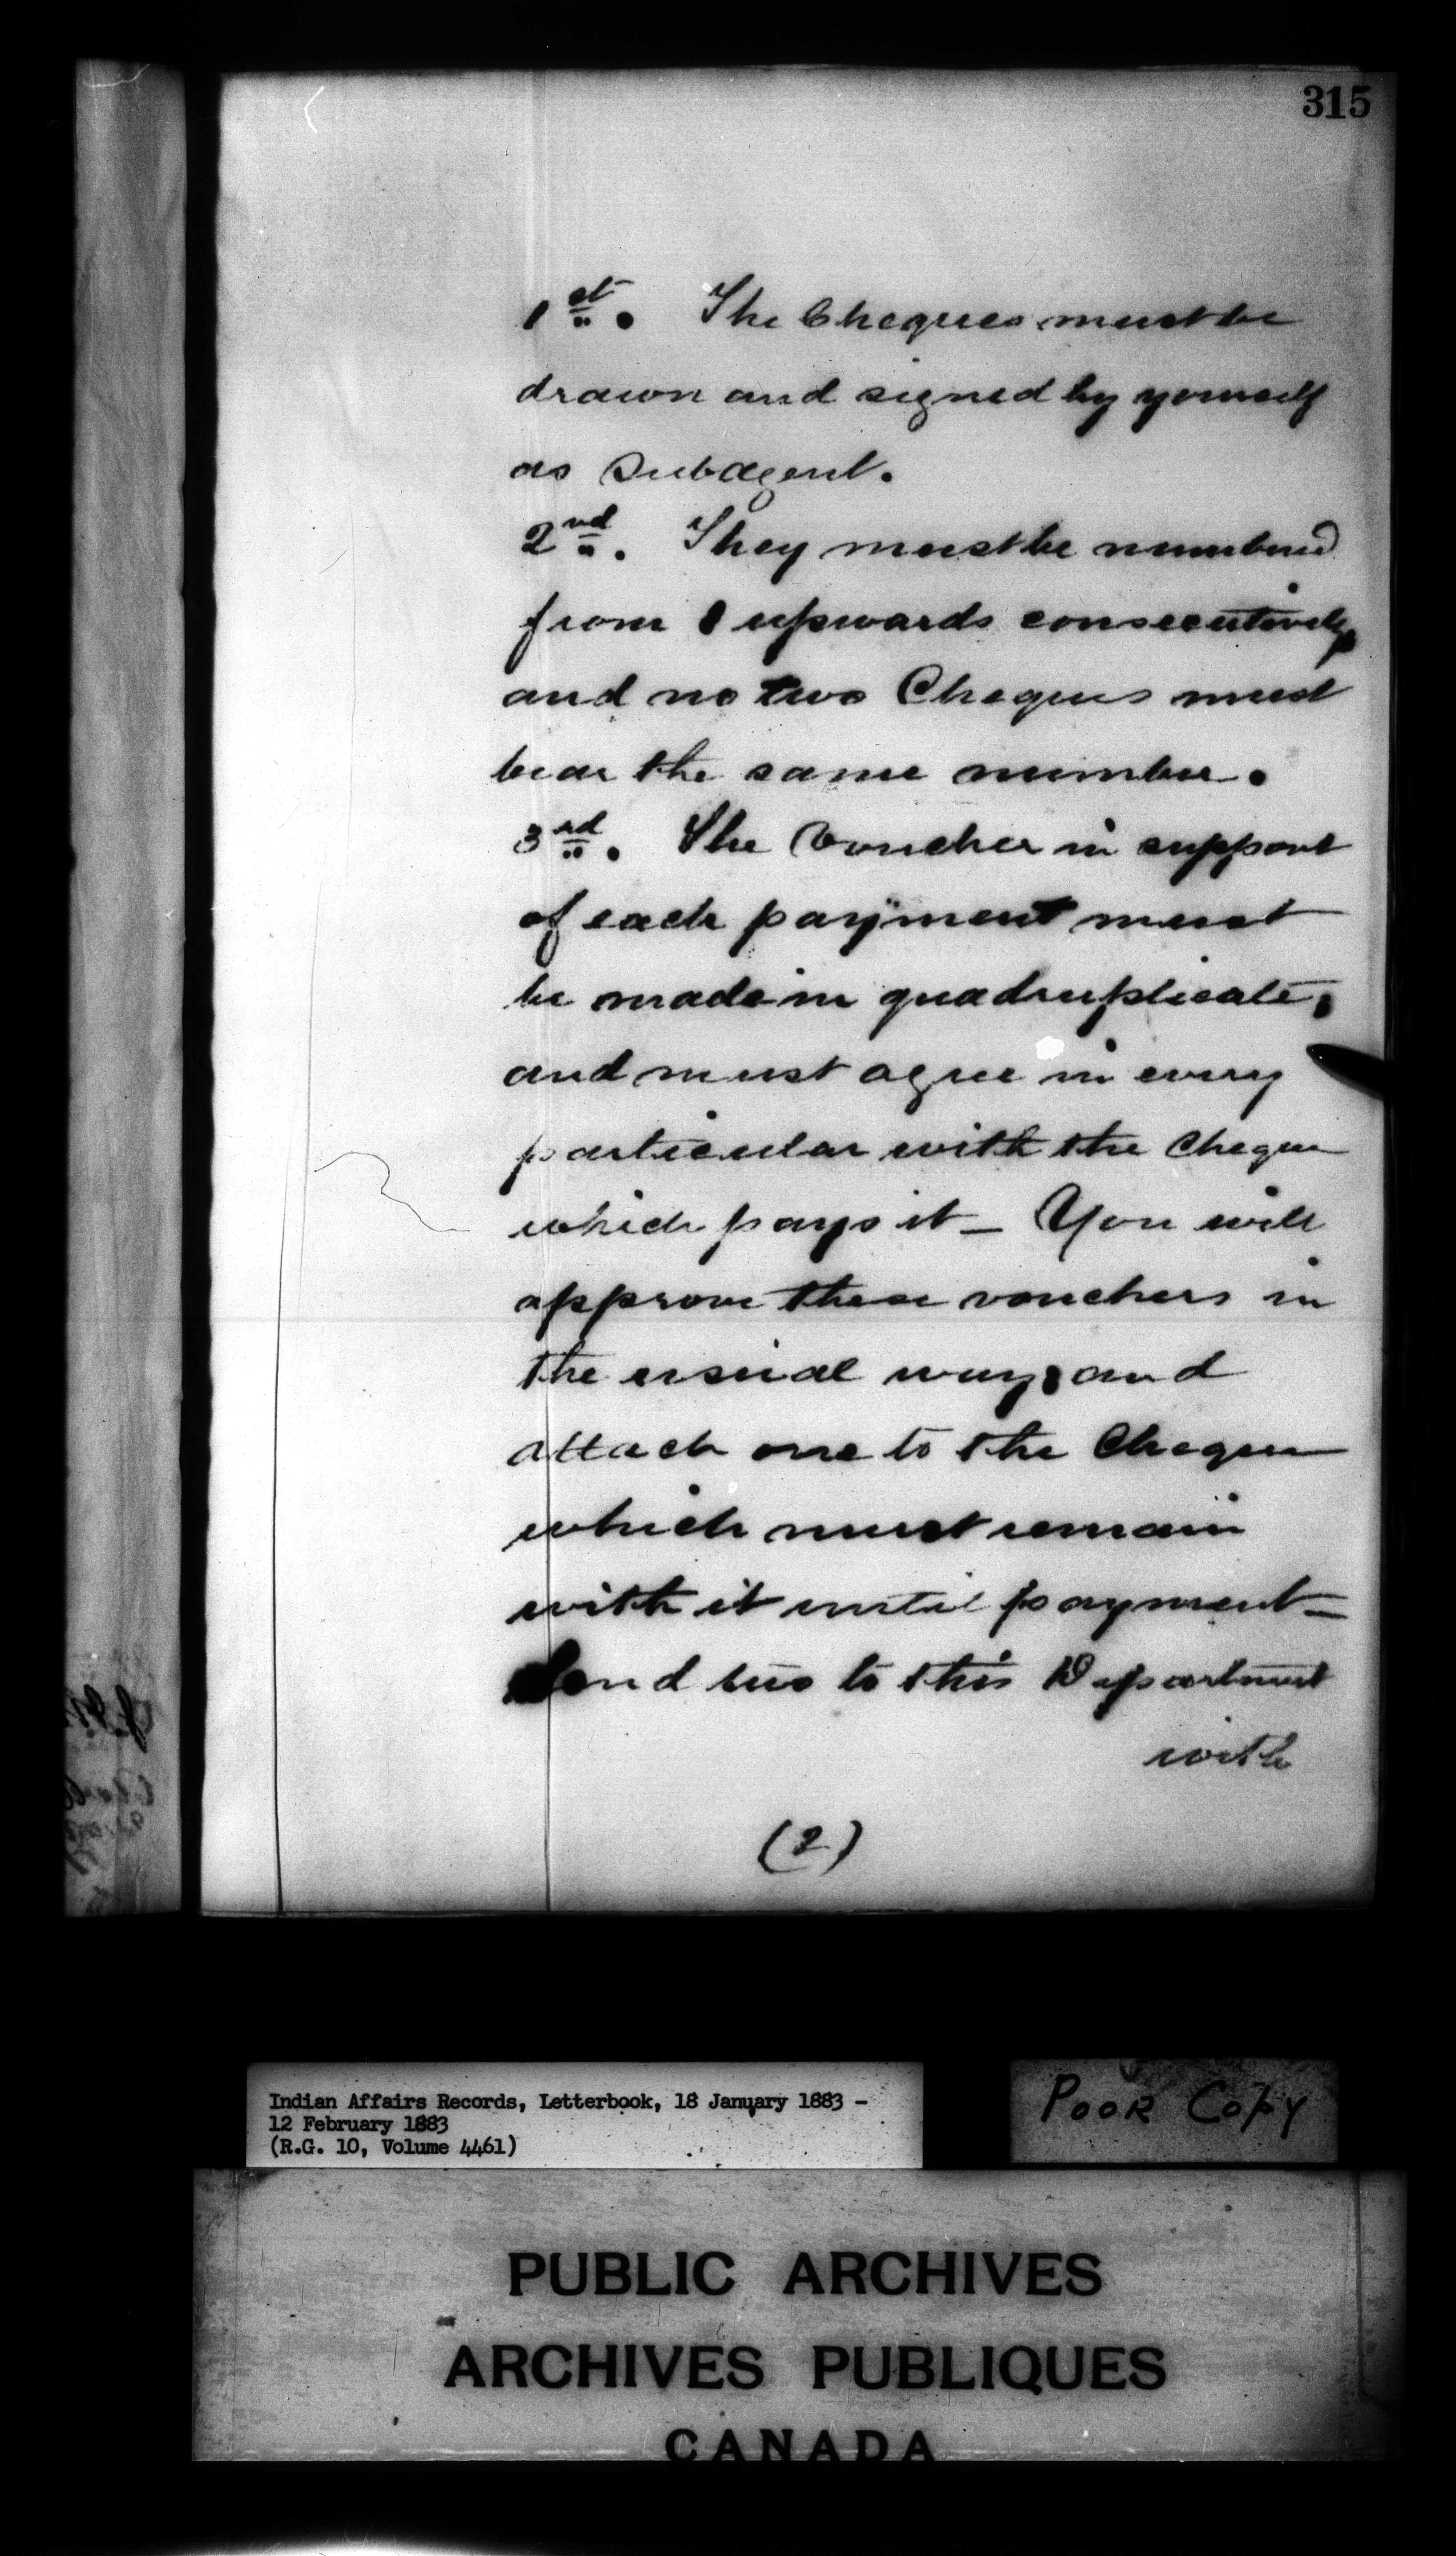 315
1st. The Cheques must be
drawn and signed by yourself
as Subagent.
2nd. They must be numbered
from 1 upwards consecutively,
and no two Cheques must
bear the same number.
3rd. The Voucher in support
of each payment must
be made in quadruplicate,
and must agree in every
particular with the Cheque
which pays it — You will
approve these vouchers in
the usual way, and
attach one to the Cheque
which must remain
with it until payment —
Send two to this Department
with
(2)
Indian Affairs Records, Letterbook, 18 January 1883 -
12 February 1883
(R.G. 10, Volume 4461)
POOR COPY
PUBLIC ARCHIVES
ARCHIVES PUBLIQUES
CANADA